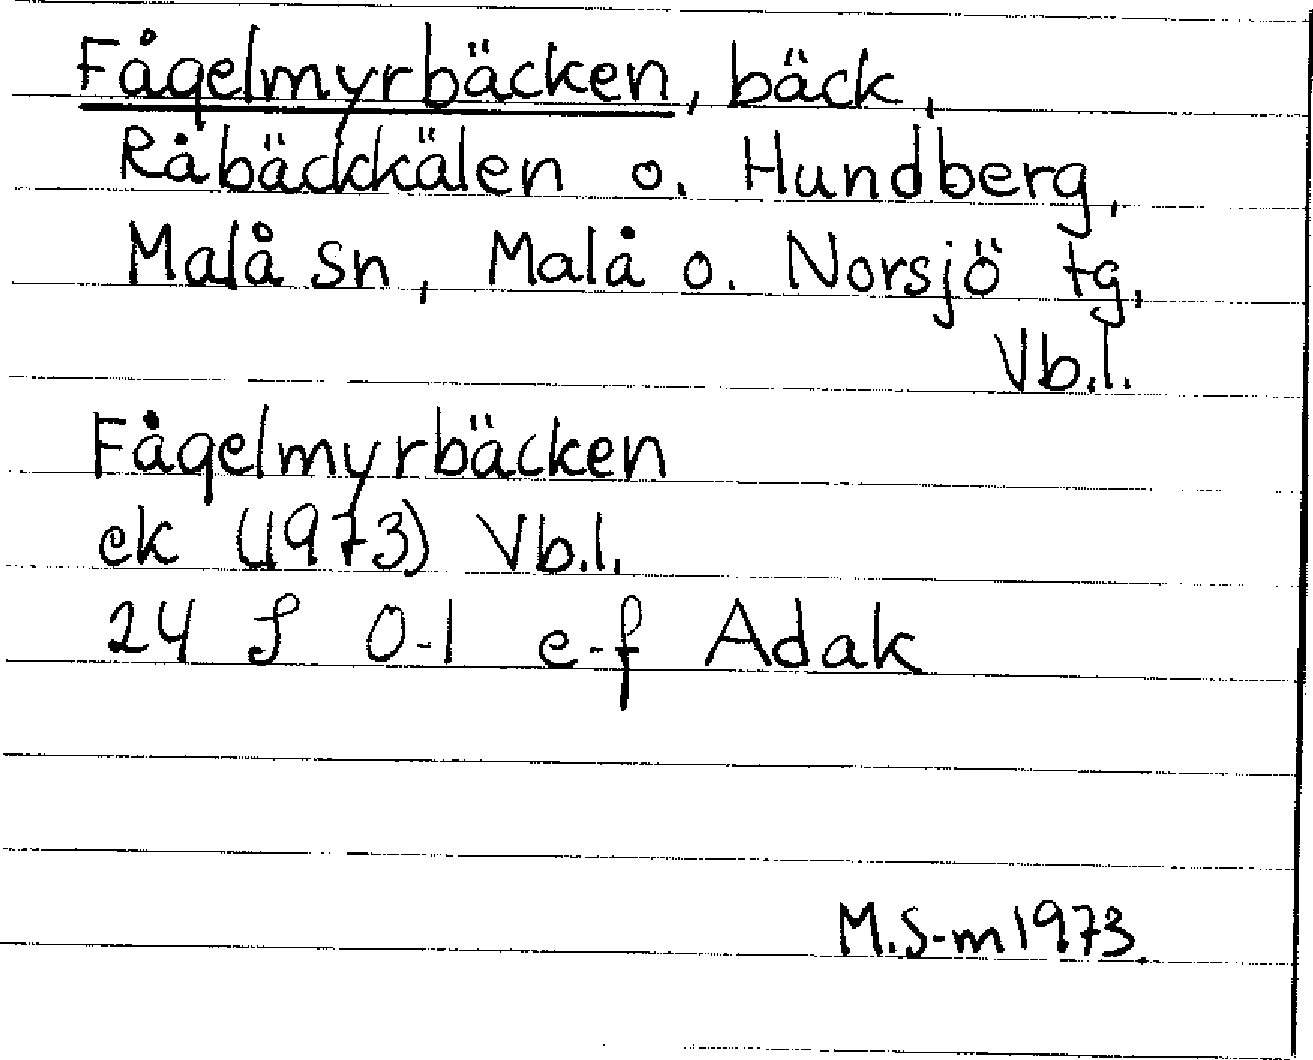 Fågelmyrbäcken, bäck,
Råbäckkälen o. Hundberg,
Malå sn, Malå o. Norsjö tg,
Vb.l.
Fågelmyrbäcken
ek (1973) Vb.l.
24 J 0-1 e-f Adak
M.S-m 1973.